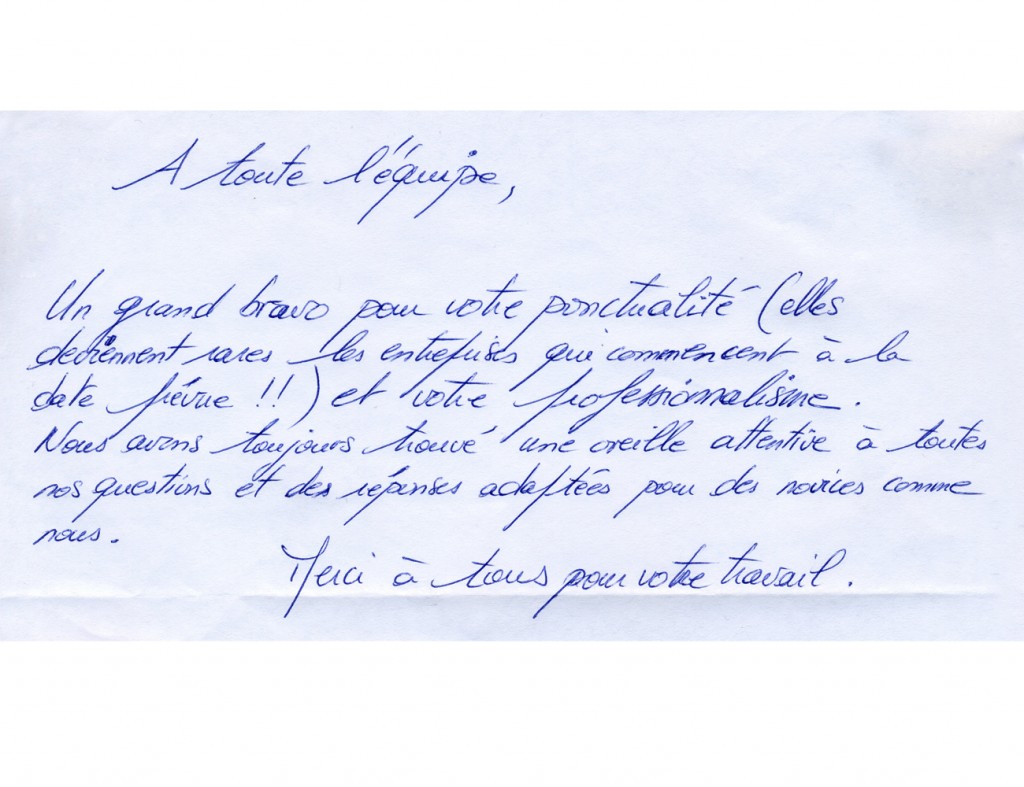 A toute l'équipe,
Un grand bravo pour votre ponctualité (elles
deviennent rares les entreprises qui commencent à la
date prévue !!) et votre professionnalisme.
Nous avons toujours trouvé une oreille attentive à toutes
nos questions et des réponses adaptées pour des novices comme
nous.
Merci à tous pour votre travail.